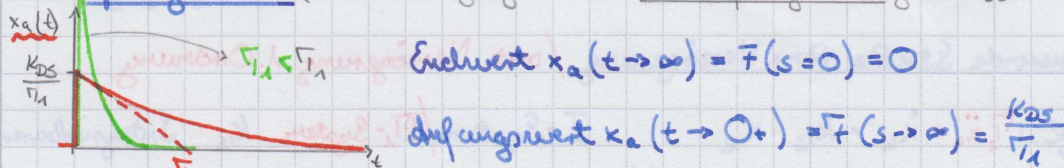 xₐ(t)
K_DS
T₁
T₁ < T₁
T
t
Endwert xₐ(t→∞) = F(s=0) = 0
Anfangswert xₐ(t→0+) = F(s→∞) = K_DS/T₁